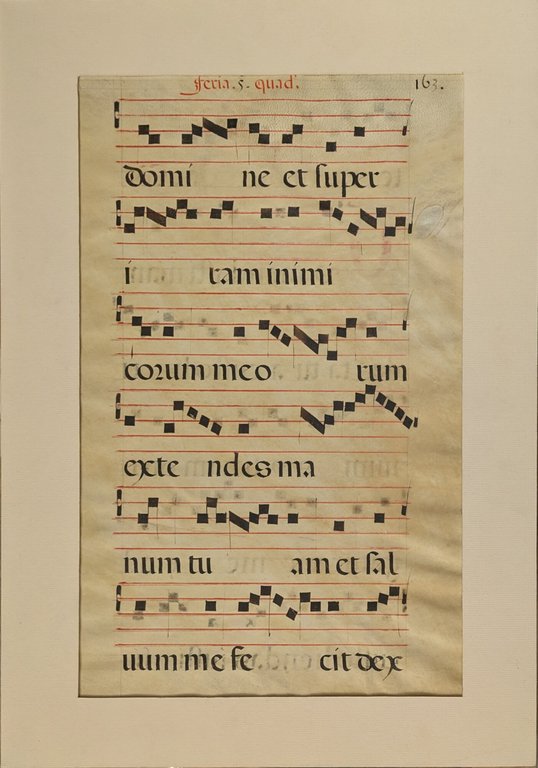 feria. 5. quad. 163.
domi ne et super
i ram inimi
corum meo rum
exte ndes ma
num tu am et sal
uum me fe cit dex